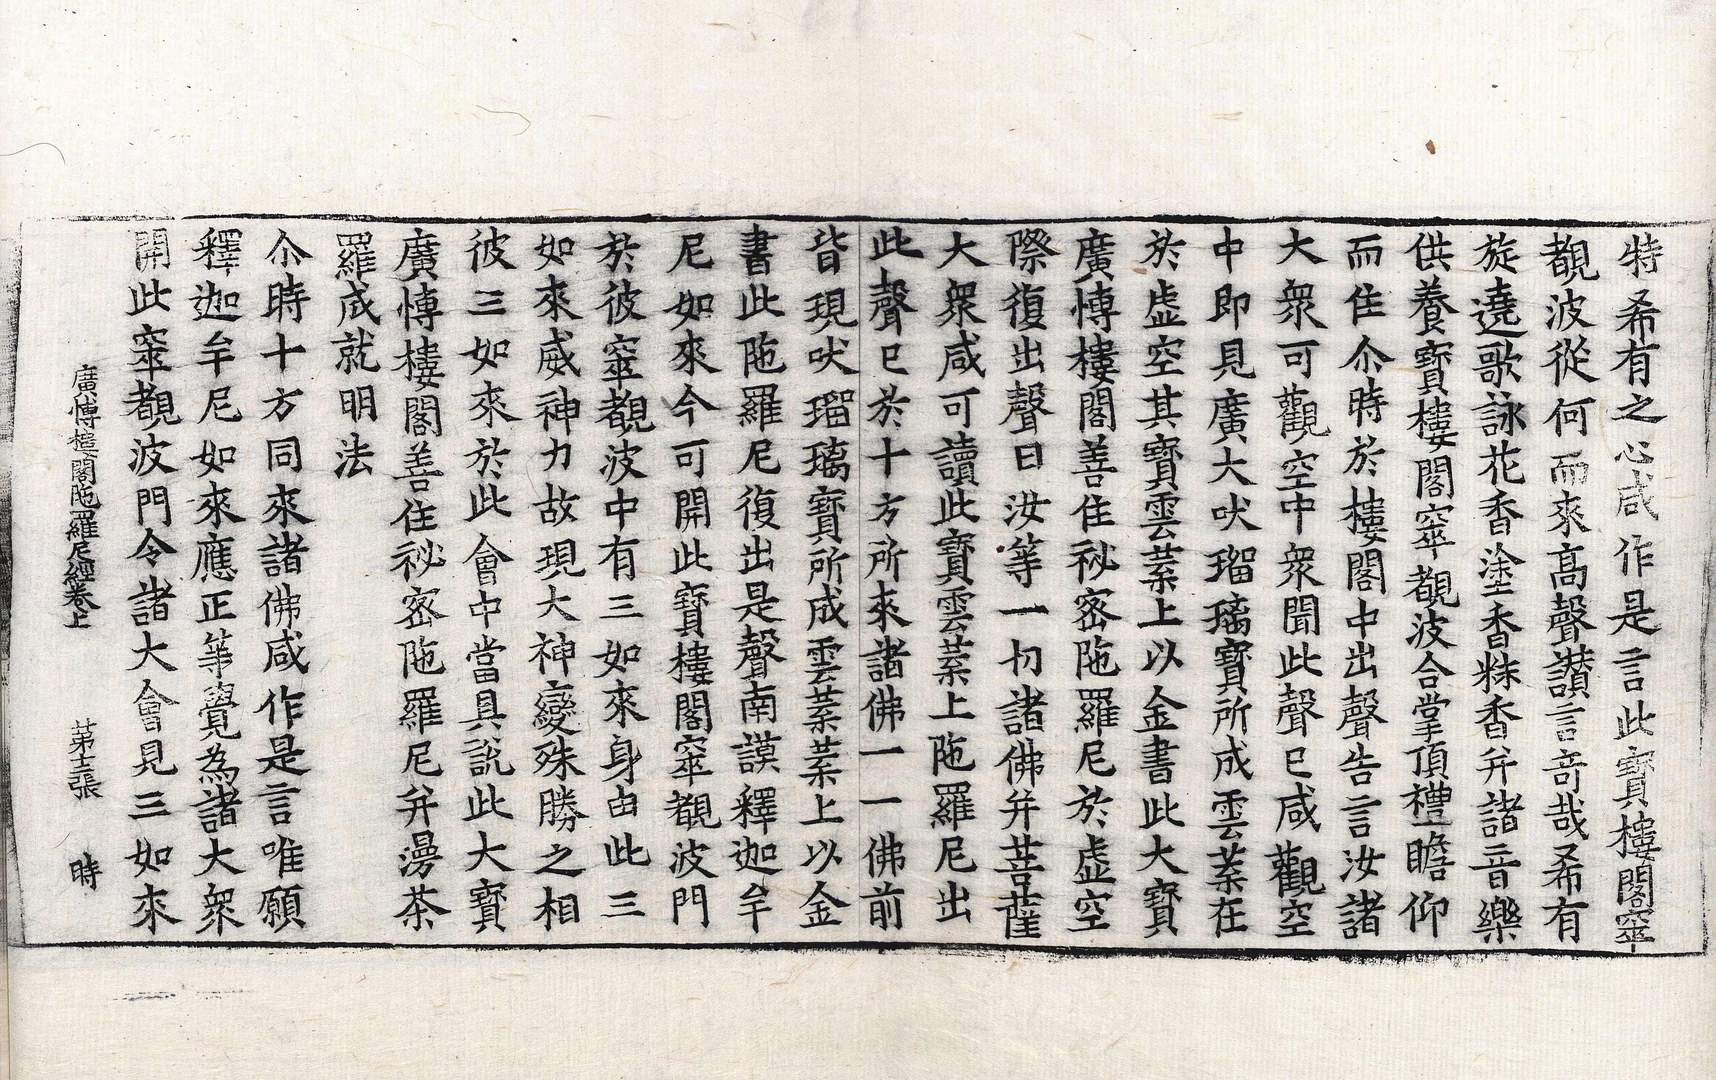 特希有之心咸作是言此寶樓閣窣
覩波從何而來高聲讃言奇哉希有
旋遶歌詠花香塗香粖香并諸音樂
供養寶樓閣窣覩波合掌頂禮瞻仰
而住尒時於樓閣中出聲告言汝諸
大衆可觀空中衆聞此聲已咸觀空
中即見廣大吠瑠璃寶所成雲葉在
於虛空其寶雲葉上以金書此大寶
廣博樓閣善住祕密陁羅尼於虛空
際復出聲曰汝等一切諸佛并菩薩
大衆咸可讀此寶雲葉上陁羅尼出
此聲已於十方所來諸佛一一佛前
皆現吠瑠璃寶所成雲葉葉上以金
書此陁羅尼復出是聲南謨釋迦牟
尼如來今可開此寶樓閣窣覩波門
於彼窣覩波中有三如來身由此三
如來威神力故現大神變殊勝之相
彼三如來於此會中當具說此大寶
廣博樓閣善住祕密陁羅尼并漫荼
羅成就明法
尒時十方同來諸佛咸作是言唯願
釋迦牟尼如來應正等覺為諸大衆
開此窣覩波門令諸大會見三如來
廣博樓閣陁羅尼經卷上 第十二張 時